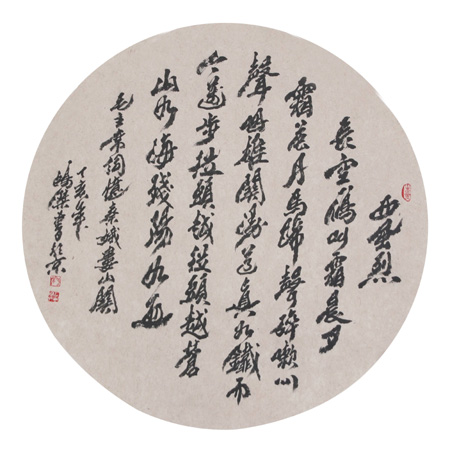 西風烈
長空雁叫霜晨月
霜晨月馬蹄聲碎喇叭
聲咽雄關漫道真如鐵而
今邁步從頭越從頭越蒼
山如海殘陽如血
毛主席詞憶秦娥婁山關
丁亥年
書於京